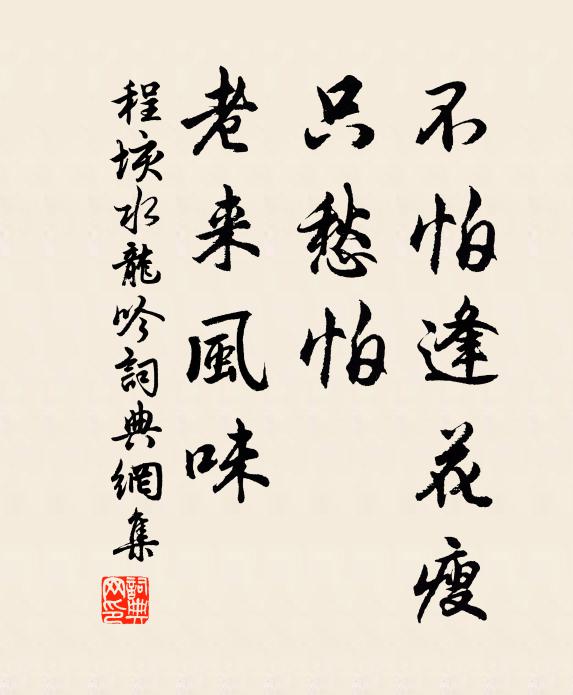 不怕逢花瘦
只愁怕
老来風味
程垓水龍吟詞典網集
詞典
网印